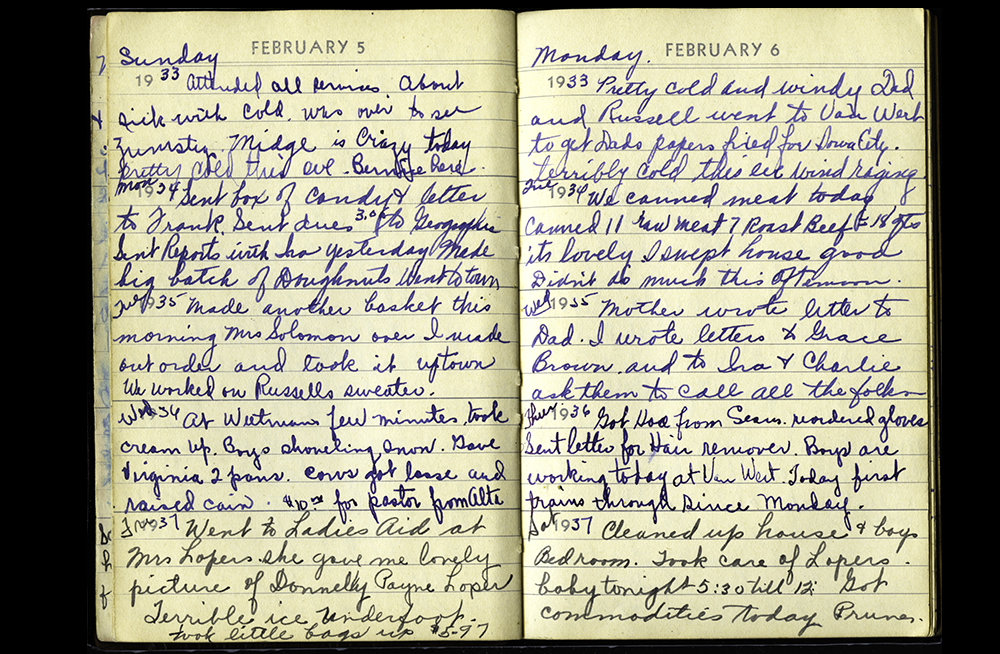 FEBRUARY 5
Sunday
1933 Attended all services. About
sick with cold. was over to see
Midge is Crazy today
Pretty cold this eve. Bernice here.
Mon 1934 Sent box of candy & letter
to Frank. Sent dues 3.00 to Geographic
Sent Reports with Ira yesterday Made
big batch of Doughnuts Went to town
Tue 1935 Made another basket this
morning Mrs Solomon over I made
out order and took it uptown
We worked on Russells sweater.
Wed 1936 At Weetmans few minutes, took
cream up. Boys shoveling snow. Gave
Virginia 2 pans. cows got losse and
raised cain. $10.00 for pastor from Alta
Fri 1937 Went to Ladies Aid at
Mrs Lopers she gave me lovely
picture of Donnelly Payne Loper
Terrible ice underfoot.
took little bags up $5.97
FEBRUARY 6
Monday.
1933 Pretty cold and windy Dad
and Russell went to Van Wert
to get Dads papers fixed for Iowa City.
Terribly cold this eve wind raging
Tue 1934 We canned meat today
canned 11 raw meat 7 Roast Beef = 18 qts
its lovely I swept house good
Didn't do much this afternoon.
Wed 1935 Mother wrote letter to
Dad. I wrote letters to Grace
Brown. and to Ira & Charlie
ask them to call all the folks
Thur 1936 Got from Sears. reordered gloves
Sent letter for Hair remover. Boys are
working today at Van Wert. Today first
trains through since Monday.
Sat 1937 Cleaned up house & boys
Bedroom. Took care of Lopers
baby tonight 5:30 till 12. Got
commodities today Prunes.